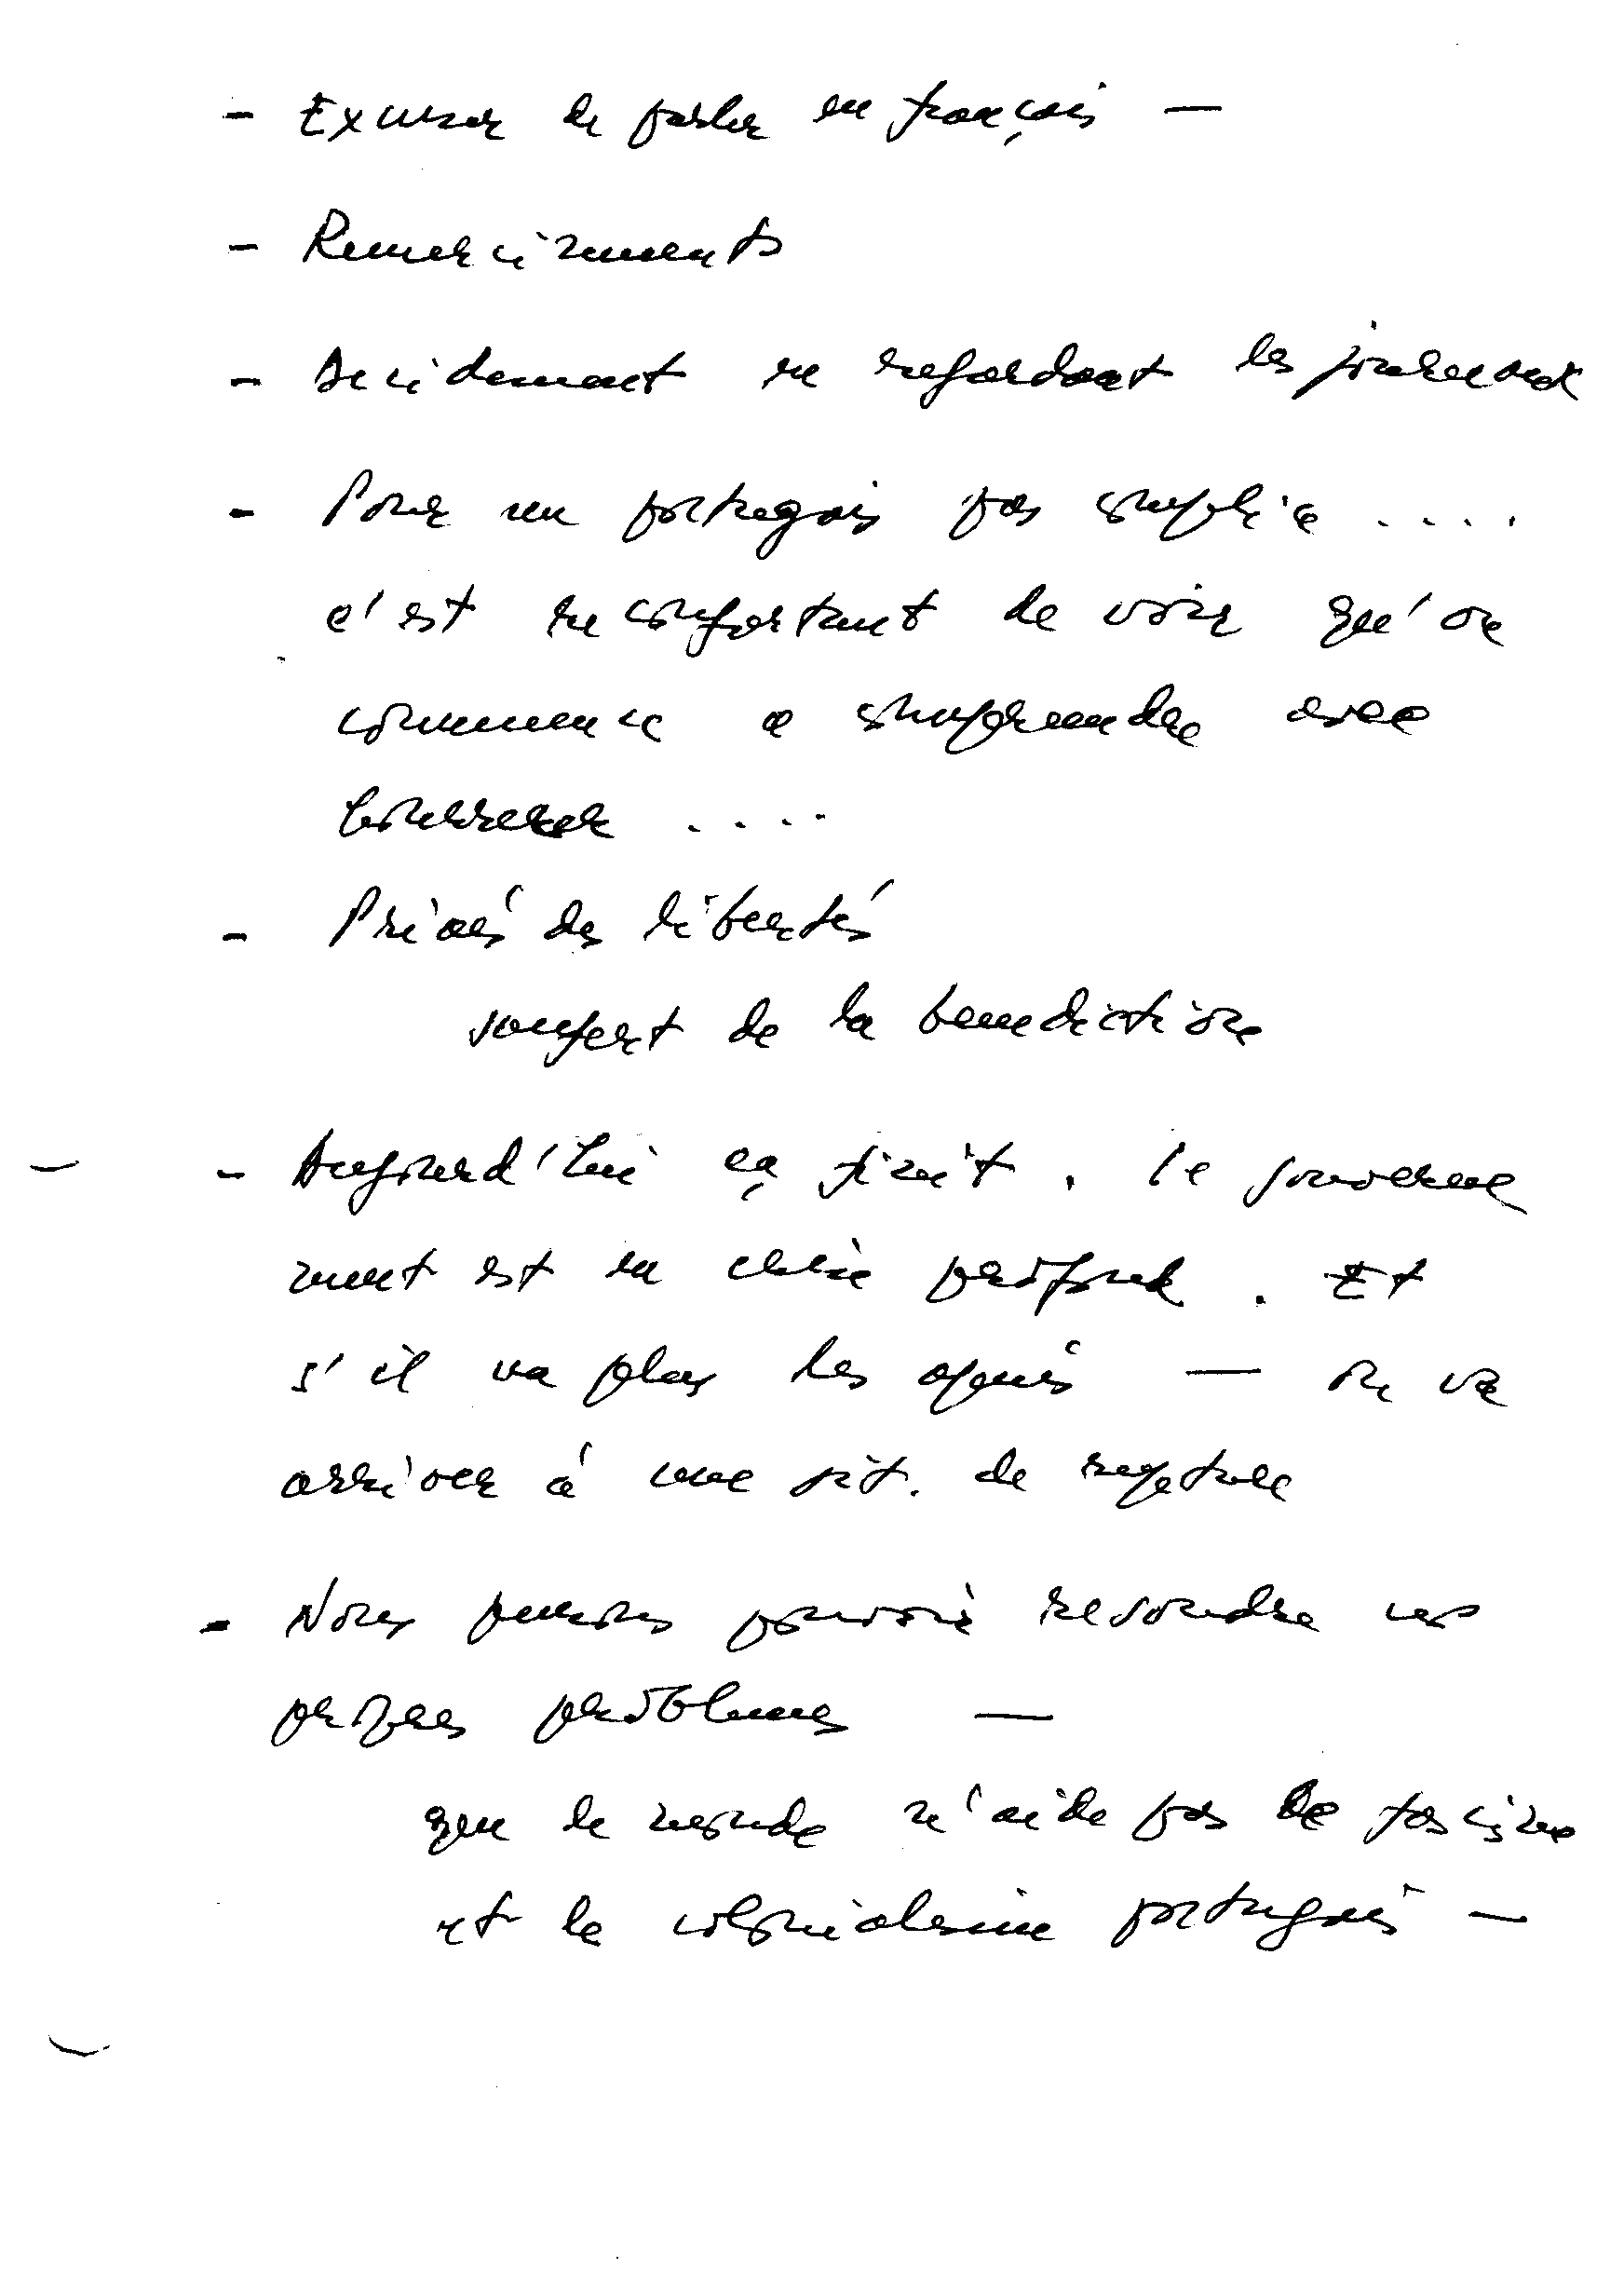 - Excuser de parler en français —
- Remerciements
- Decidement en regardant les journaux
- Pour un portugais pas complice ....
c'est reconfortant de voir qu'on
commence a comprendre avec
horreur ....
- Privés des libertés
souffert de la benediction
- Aujourd'hui ça finit. Le gouverne
ment est en crise profond. Et
s'il va plus les appuis — on va
arriver à une sit. de rupture
- Nous pensons pouvoir resoudre nos
propres problemes —
que le monde n'aide pas le fascisme
et le colonialisme portugais —